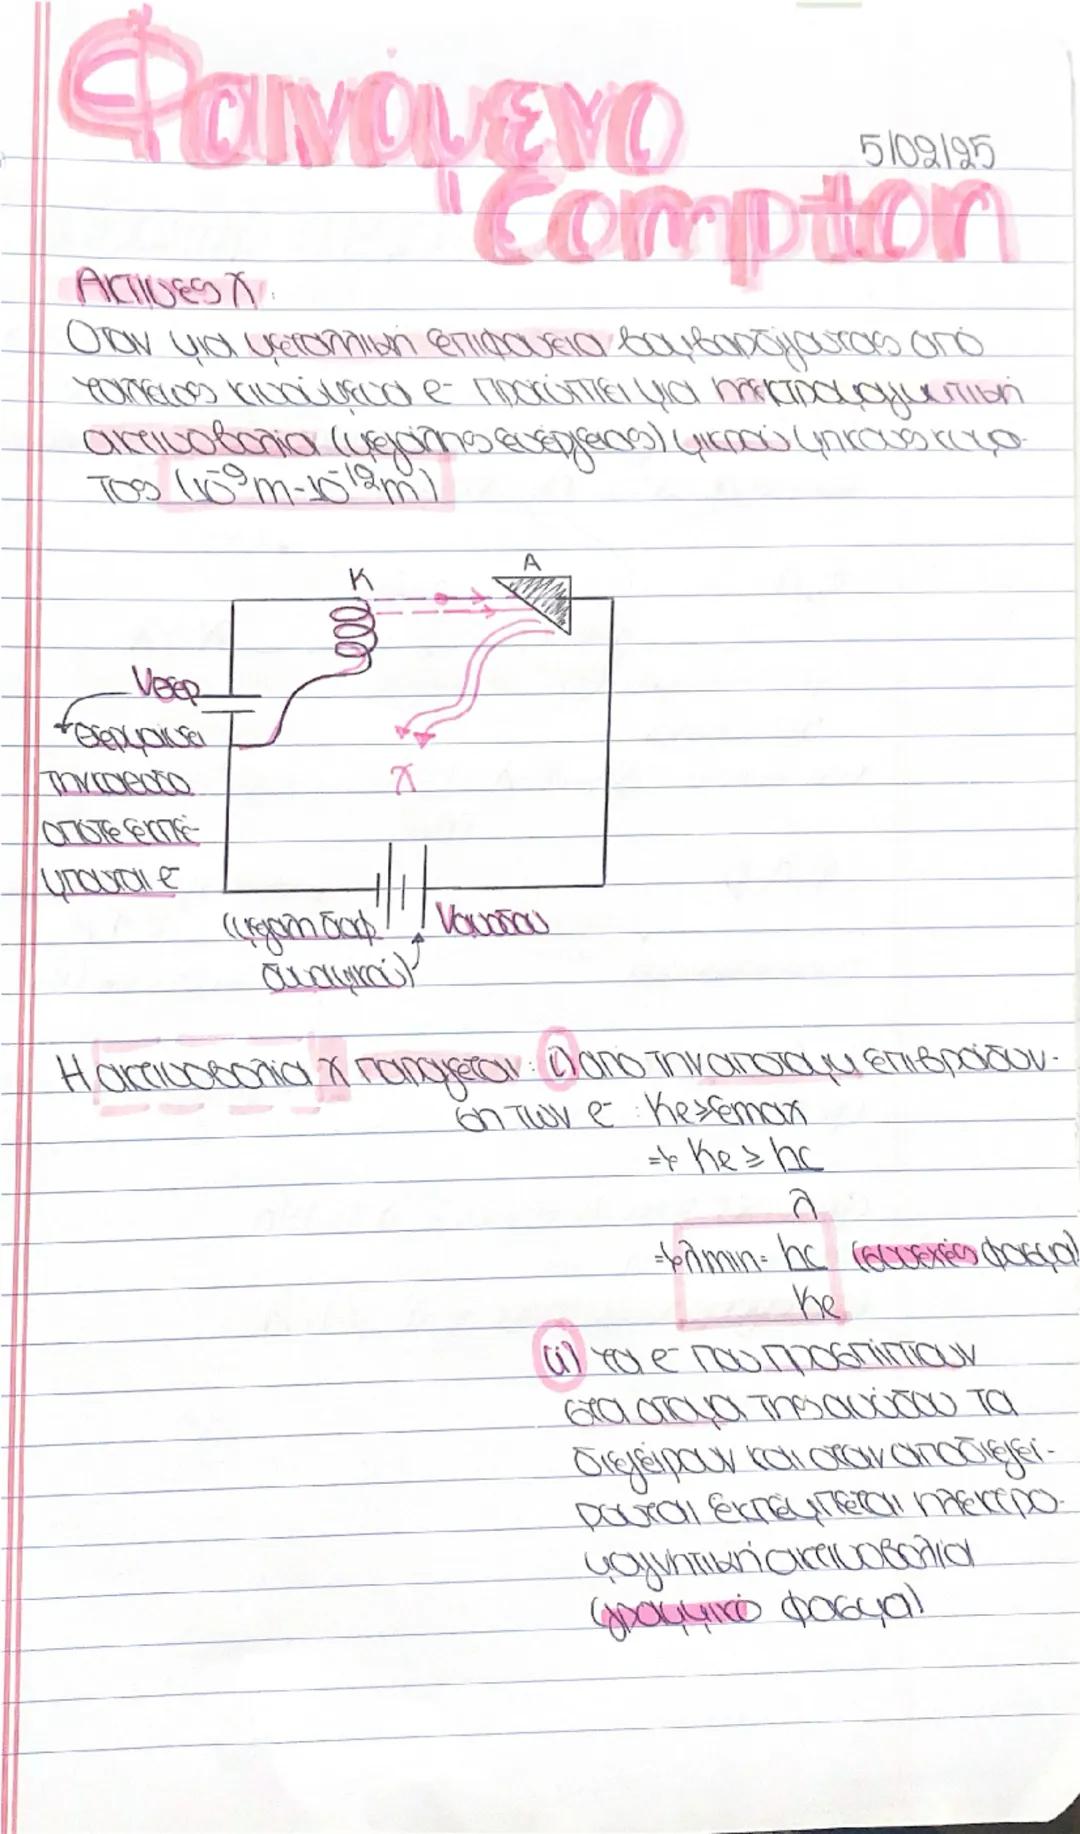 Φαινόμενο
5/02/25
Compton
Ακτίνες Χ:
Όταν μια μεταλλική επιφάνεια βομβαρδίζονται από
ταχέως κινούμενα e- προκύπτει μια ηλεκτρομαγνητική
ακτινοβολία (μεγάλης ενέργειας) μικρού μήκους κύμα-
τος (10⁻⁹m-10⁻¹²m)
K
A
Vθερ
θερμαίνει
την κάθοδο
οπότε εκπέ-
μπονται e-
X
(μεγάλη διαφ
δυναμικού)
Vανόδου
Η ακτινοβολία Χ παράγεται: i) από την απότομη επιβράδυν-
ση των e- : Ke≥Emax
⇒ Ke ≥ hc
λ
⇒ λmin = hc (συνεχές φάσμα)
Ke
ii) τα e- που προσπίπτουν
στα άτομα της ανόδου τα
διεγείρουν και όταν αποδιεγεί-
ρονται εκπέμπεται ηλεκτρο-
μαγνητική ακτινοβολία
(γραμμικό φάσμα)